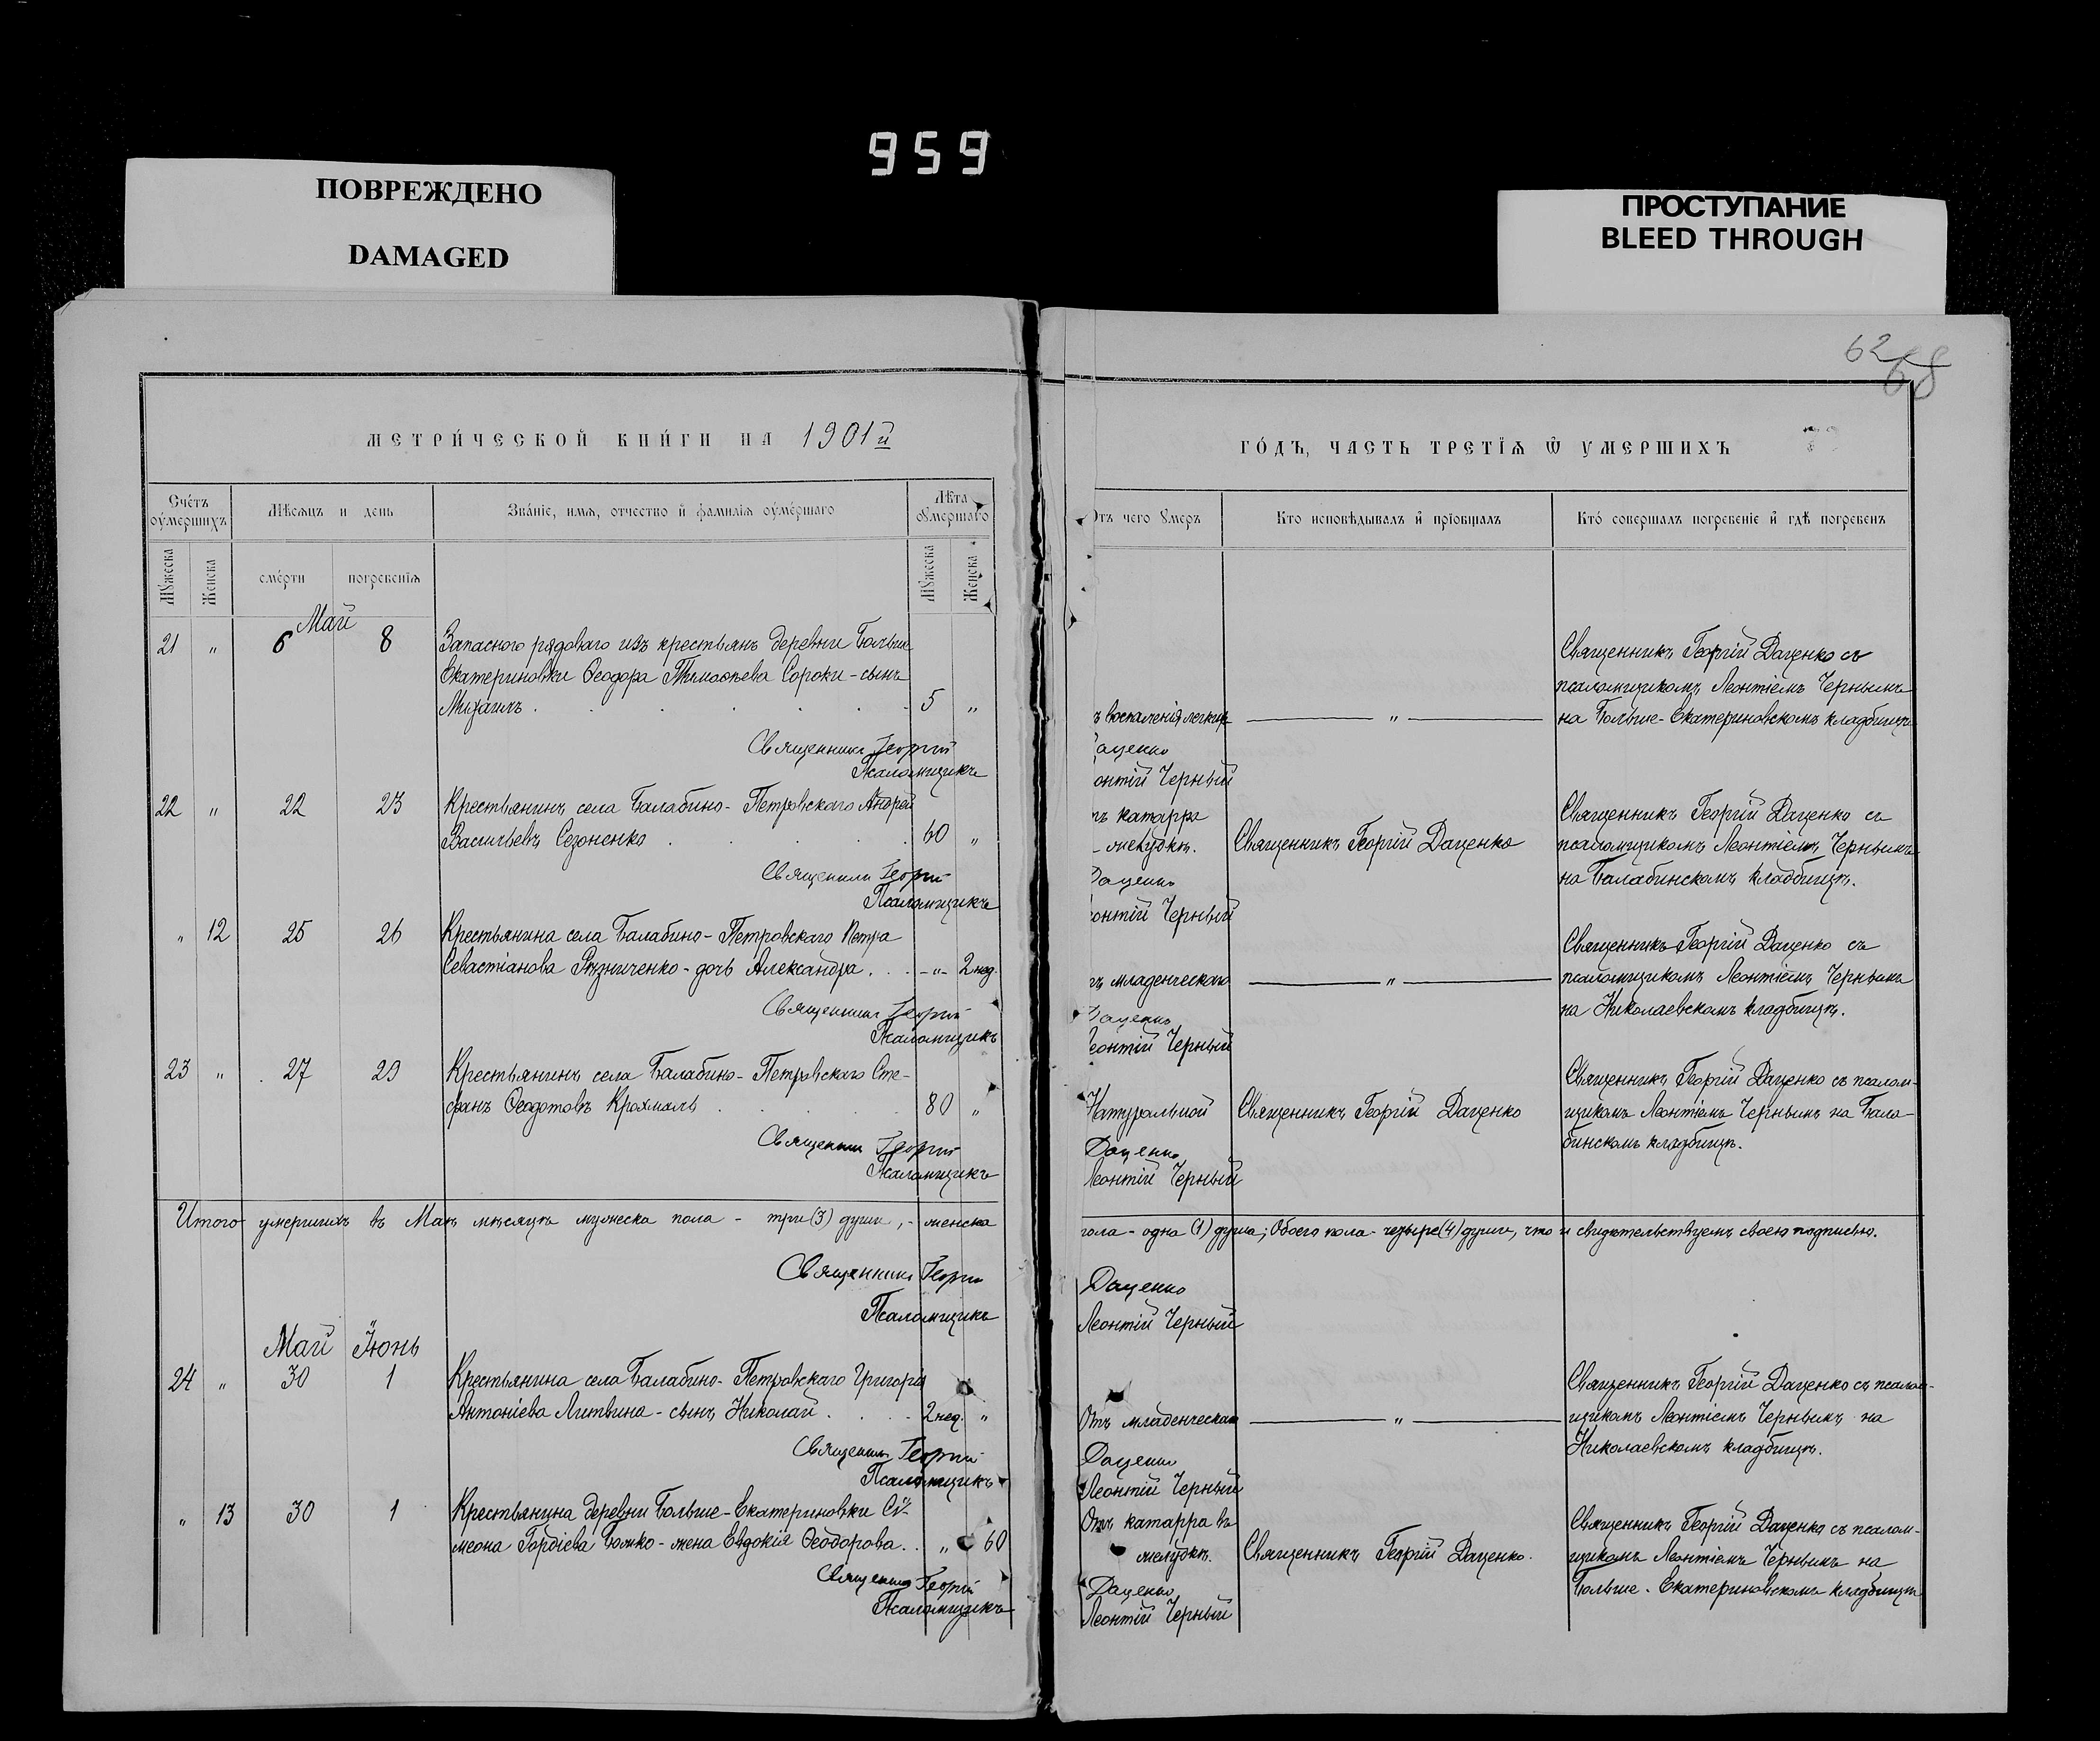 959
ПОВРЕЖДЕНО
DAMAGED
ПРОСТУПАНИЕ
BLEED THROUGH
62
68
МЕТРИ́ЧЕСКОЙ КНИ́ГИ НА 1901й
ГО́ДЪ, ЧАСТЬ ТРЕТІѦ Ѿ УМЕРШИХЪ
Счетъ оумершихъ
Мѣсяцъ и день
Зва́нїе, имя, отчество и҆ фамилїя оуме́ршаго
Лѣта оумершаго
Отъ чего умеръ
Кто исповѣдывалъ и҆ прїобщалъ
Кто́ совершалъ погребенїе и҆ гдѣ погребенъ
Мужеска
Женска
смерти
погребенїя
Мужеска
Женска
Май
21 " 6 8 Запасного рядоваго изъ крестьянъ деревни Больше-
Екатериновки Ѳеодора Тимоѳеева Сороки - сынъ
Михаилъ . . . . . . 5 "
ъ воспаленія легкихъ
"
Священникъ Георгій Даценко съ
псаломщикомъ Леонтіемъ Чернымъ
на Больше-Екатериновскомъ кладбищѣ
Священникъ Георгій
Даценко
Псаломщикъ
онтій Черный
22 " 22 23 Крестьянинъ села Балабино-Петровскаго Андрей
Васильевъ Сезоненко . . . 60 "
тъ катарра
желудкѣ.
Священникъ Георгій Даценко
Священникъ Георгій Даценко съ
псаломщикомъ Леонтіемъ Чернымъ
на Балабинскомъ кладбищѣ.
Священникъ Георгій
Даценко
Псаломщикъ
онтій Черный
" 12 25 26 Крестьянина села Балабино-Петровскаго Петра
Севастіанова Рѣзниченко - дочь Александра . . -"- 2 нед.
тъ младенческой
"
Священникъ Георгій Даценко съ
псаломщикомъ Леонтіемъ Чернымъ
на Николаевскомъ кладбищѣ.
Священникъ Георгій
Даценко
Псаломщикъ
еонтій Черный
23 " 27 29 Крестьянинъ села Балабино-Петровскаго Сте-
фанъ Ѳеодотовъ Крохмаль . . . . 80 "
Натуральной
Священникъ Георгій Даценко
Священникъ Георгій Даценко съ псалом-
щикомъ Леонтіемъ Чернымъ на Бала-
бинскомъ кладбищѣ.
Священникъ Георгій
Даценко
Псаломщикъ
Леонтій Черный
Итого умершихъ въ Маѣ мѣсяцѣ мужеска пола - три (3) души, - женска
пола - одна (1) душа; Обоего пола - четыре (4) души, что и свидѣтельствуемъ своею подписью.
Священникъ Георгій
Даценко
Псаломщикъ
Леонтій Черный
Май Іюнь
24 " 30 1 Крестьянина села Балабино-Петровскаго Григорія
Антоніева Литвина - сынъ Николай . . . . 2 нед. "
Отъ младенческой
"
Священникъ Георгій Даценко съ псалом-
щикомъ Леонтіемъ Чернымъ на
Николаевскомъ кладбищѣ.
Священникъ Георгій
Даценко
Псаломщикъ
Леонтій Черный
" 13 30 1 Крестьянина деревни Больше-Екатериновки Сѵ-
меона Гордіева Божко - жена Евдокія Ѳеодорова . . " 60
Отъ катарра въ
желудкѣ.
Священникъ Георгій Даценко.
Священникъ Георгій Даценко съ псалом-
щикомъ Леонтіемъ Чернымъ на
Больше-Екатериновскомъ кладбищѣ
Священникъ Георгій
Даценко
Псаломщикъ
Леонтій Черный